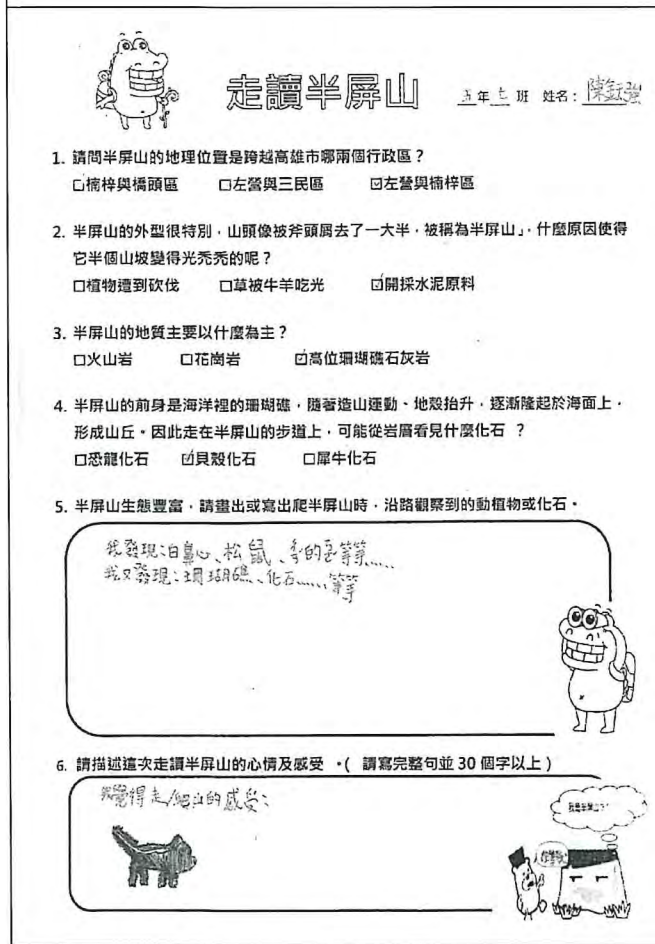 走讀半屏山
五年七班 姓名：陳鈺強
1. 請問半屏山的地理位置是跨越高雄市哪兩個行政區？
□楠梓與橋頭區 □左營與三民區 ☑左營與楠梓區
2. 半屏山的外型很特別，山頭像被斧頭屑去了一大半，被稱為半屏山」，什麼原因使得
它半個山坡變得光禿禿的呢？
□植物遭到砍伐 □草被牛羊吃光 ☑開採水泥原料
3. 半屏山的地質主要以什麼為主？
□火山岩 □花崗岩 ☑高位珊瑚礁石灰岩
4. 半屏山的前身是海洋裡的珊瑚礁，隨著造山運動、地殼抬升，逐漸隆起於海面上，
形成山丘。因此走在半屏山的步道上，可能從岩層看見什麼化石 ？
□恐龍化石 ☑貝殼化石 □犀牛化石
5. 半屏山生態豐富，請畫出或寫出爬半屏山時，沿路觀察到的動植物或化石。
我發現：白鼻心、松鼠、的等等……
我又發現：珊瑚礁、化石……等等
6. 請描述這次走讀半屏山的心情及感受 。( 請寫完整句並 30 個字以上 )
我覺得走/爬山的感受：
我是半屏山?!